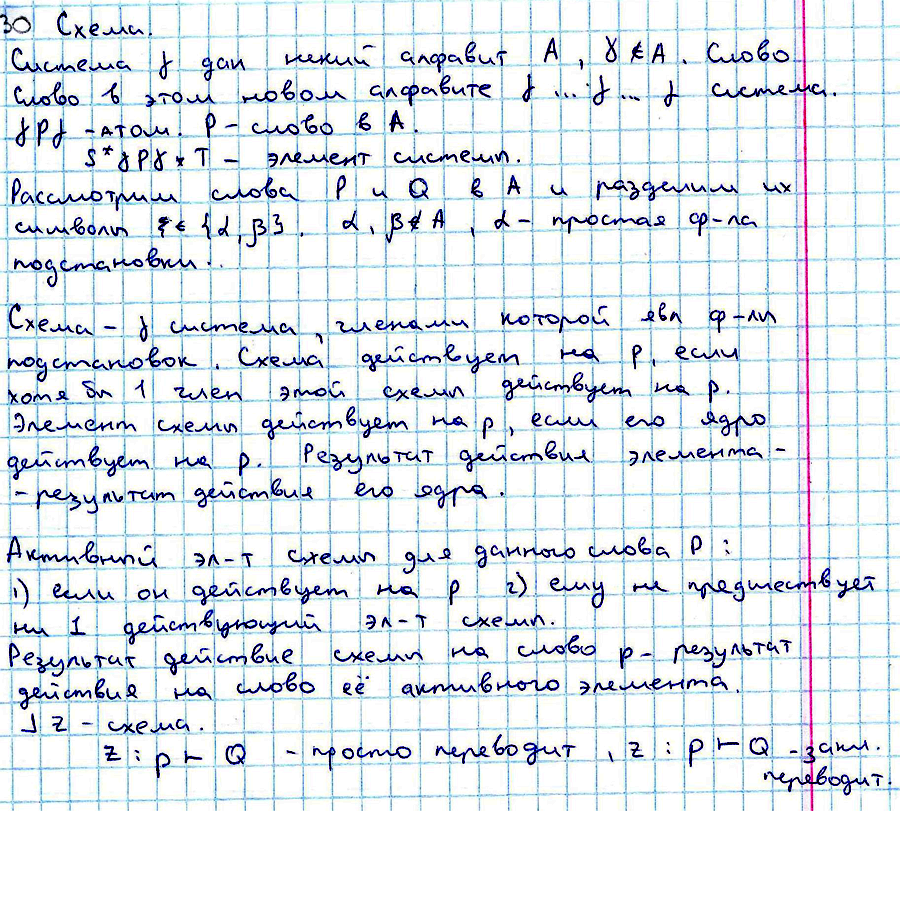 30 Схема.
Система γ дан некий алфавит A, γ∉A. Слово
Слово в этом новом алфавите γ...γ...γ система.
γPγ - атом. P - слово в A.
S*γPγ*T - элемент системы.
Рассмотрим слова P и Q в A и разделим их
символы ξ∈{α,β}. α, β∉A, α - простая ф-ла
подстановки..
Схема - γ система, членами которой явл ф-лы
подстановок. Схема действует на p, если
хотя бы 1 член этой схемы действует на p.
Элемент схемы действует на p, если его ядро
действует на p. Результат действия элемента -
- результат действия его ядра.
Активный эл-т схемы для данного слова P:
1) если он действует на p 2) ему не предшествует
ни 1 действующий эл-т схемы.
Результат действие схемы на слово p - результат
действия на слово её активного элемента.
] Z - схема.
Z : p ⊢ Q - просто переводит, Z : p ⊢ Q - закл.
переводит.